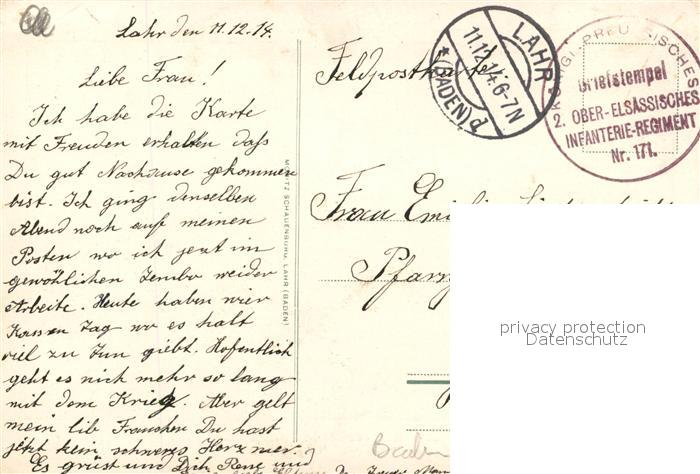 Lahr den 11.12.14.
Liebe Frau!
Ich habe die Karte
mit Freuden erhalten daß
Du gut Nachause gekommen
bist. Ich ging denselben
Abend noch auf meinen
Posten wo ich jezt im
gewöhlichen Tembo weider
Arbeite. Heute haben wier
Kassen Tag wo es halt
viel zu Tun giebt. Hofentlich
geht es nich mehr so lang
mit dem Krieg. Aber gelt
mein lib Frauchen Du hast
jetzt kein schweres Herz mer.
Es grüst und Dich Rene und
MORITZ SCHAUENBURG, LAHR (BADEN)
Feldpostkarte
LAHR
11.12.14.6-7N
* (BADEN) d
KÖNIGL. PREUSSISCHES
Briefstempel
2. OBER-ELSÄSSISCHES
INFANTERIE-REGIMENT
Nr. 171.
Frau
Pfarr
privacy protection
Datenschutz
Baden